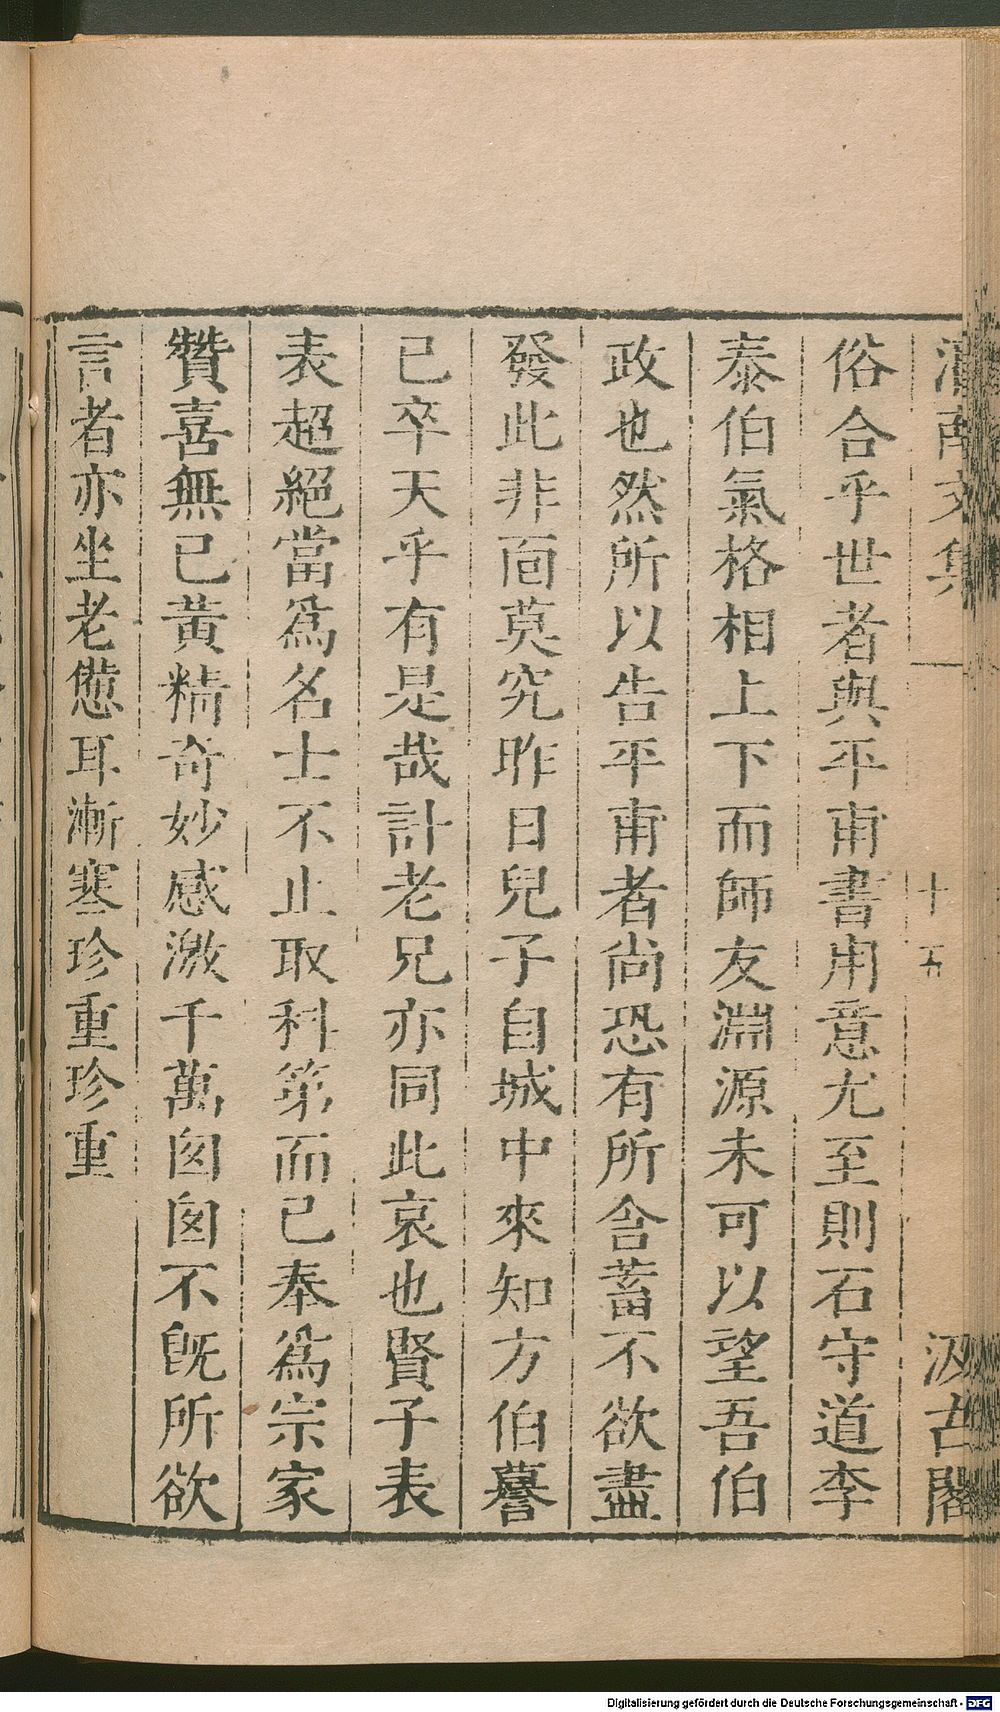 文集
十五
汲古閣
俗合乎世者與平甫書用意尤至則石守道李
泰伯氣格相上下而師友淵源未可以望吾伯
政也然所以告平甫者尚恐有所含蓄不欲盡
發此非面莫究昨日兒子自城中來知方伯謩
已卒天乎有是哉計老兄亦同此哀也賢子表
表超絕當爲名士不止取科第而已奉爲宗家
贊喜無已黃精奇妙感激千萬囪囪不旣所欲
言者亦坐老憊耳漸寒珍重珍重
Digitalisierung gefördert durch die Deutsche Forschungsgemeinschaft - DFG